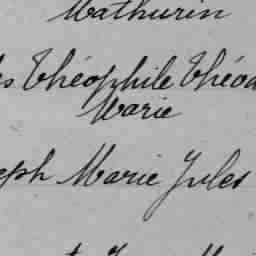 Mathurin
s Théophile Théod
Marie
eph Marie Jules